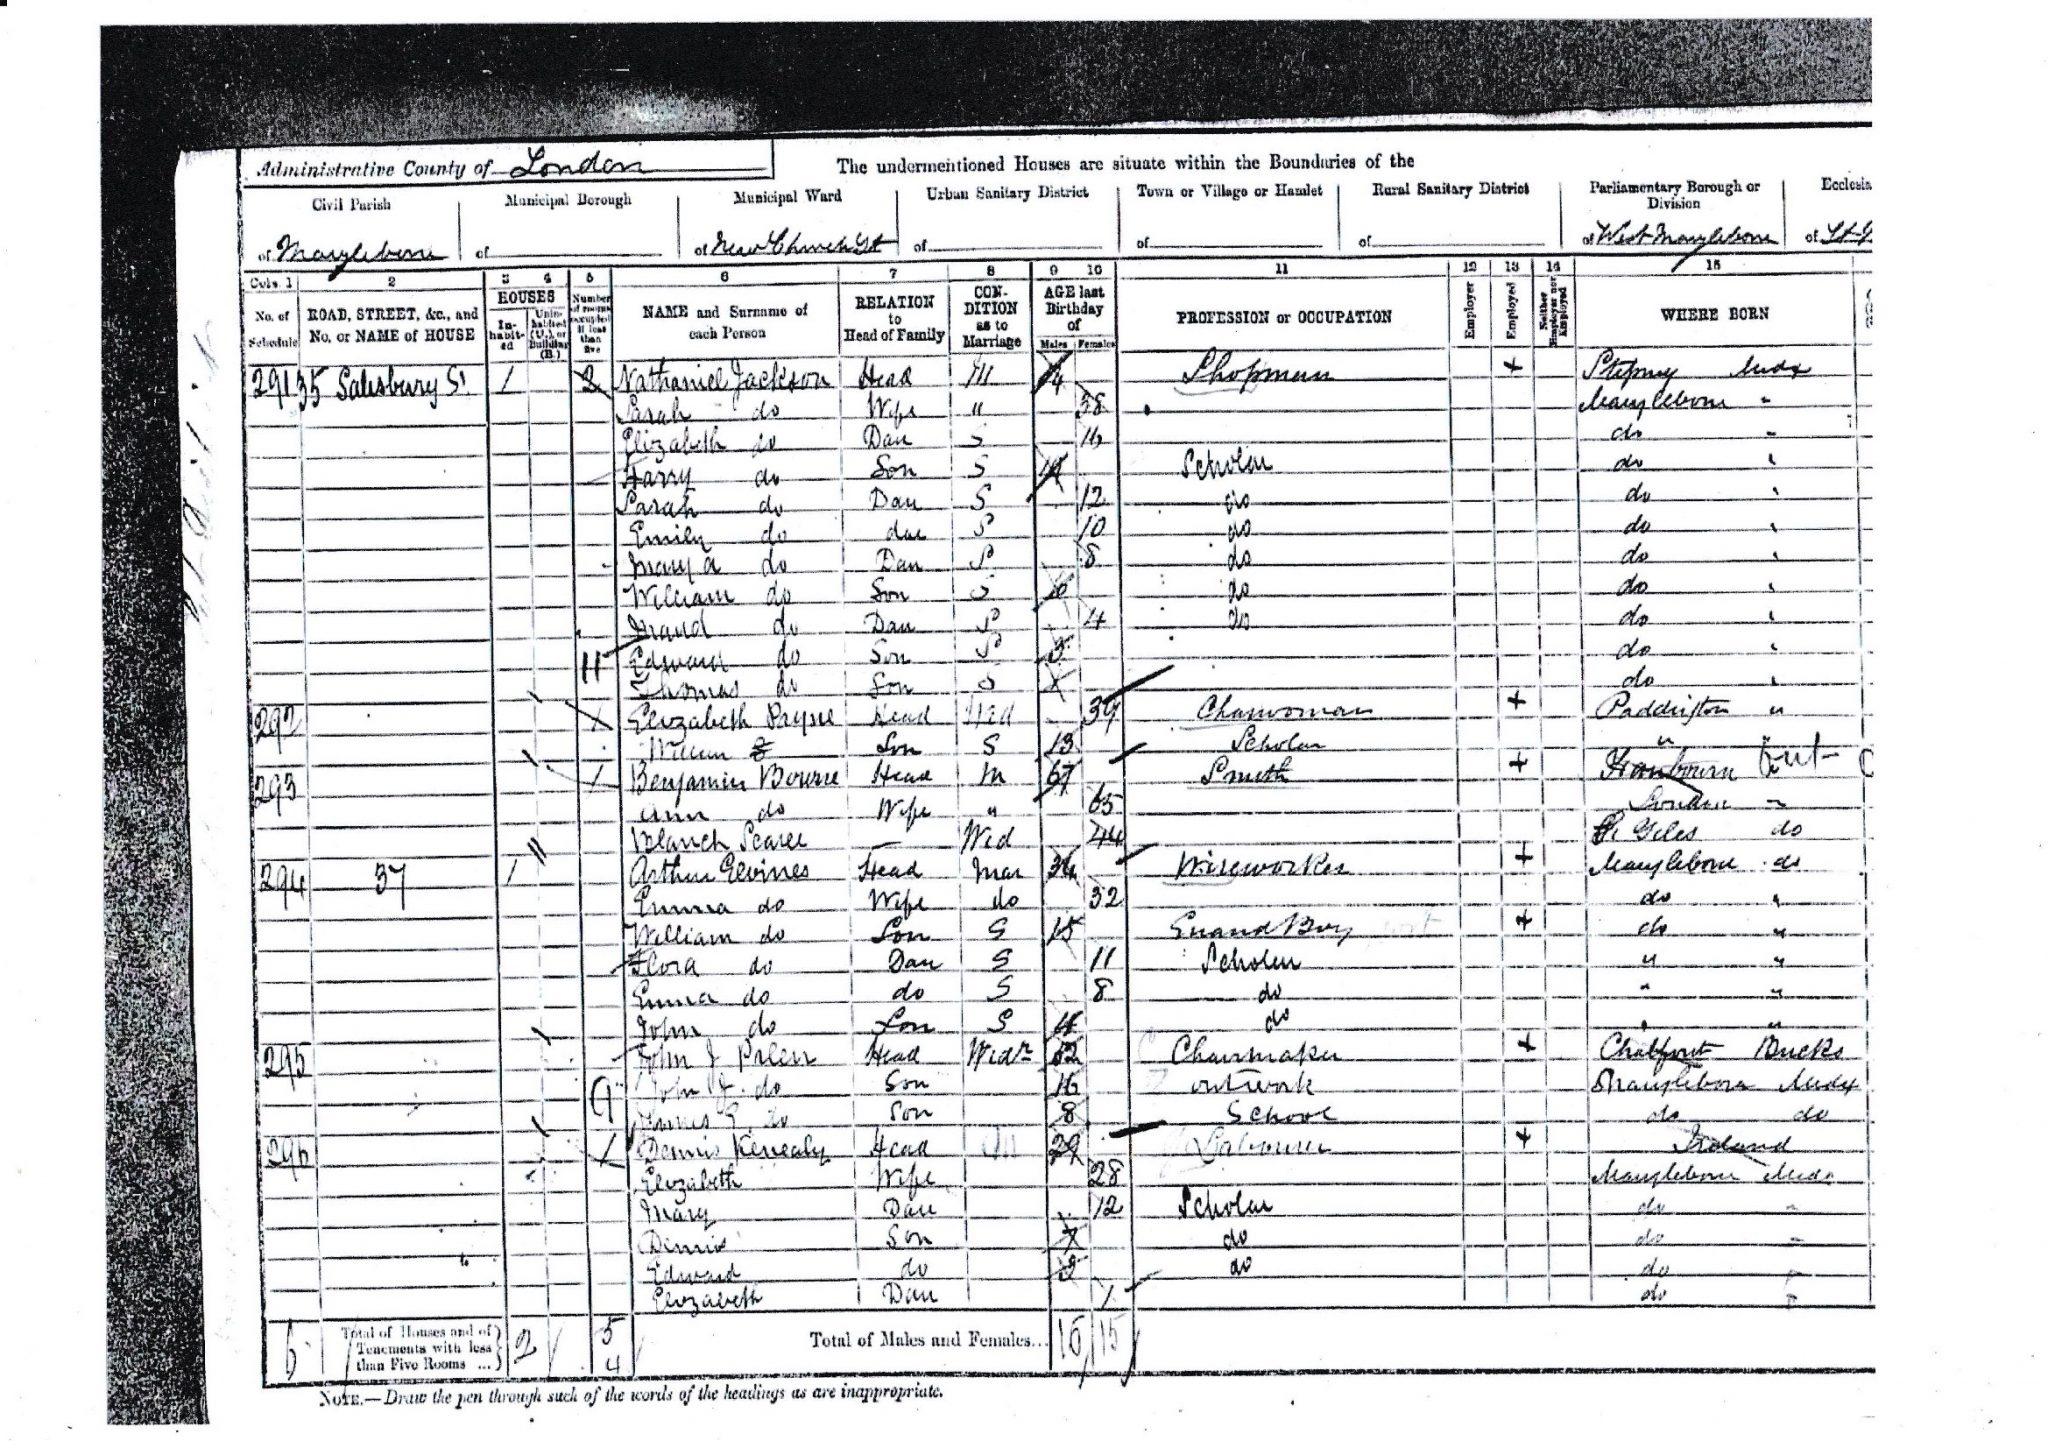 Administrative County of London
The undermentioned Houses are situate within the Boundaries of the
Civil Parish Municipal Borough Municipal Ward Urban Sanitary District Town or Village or Hamlet Rural Sanitary District Parliamentary Borough or Division Ecclesia
of Marylebone of of New Church St of of of of West Marylebone of St
Cols. 1 2 3 4 5 6 7 8 9 10 11 12 13 14 15
No. of Schedule ROAD, STREET, &c., and No. or NAME of HOUSE HOUSES In-habit-ed Unin-habited (U.), or Building (B.) Number of rooms occupied if less than five NAME and Surname of each Person RELATION to Head of Family CON-DITION as to Marriage AGE last Birthday of Males Females PROFESSION or OCCUPATION Employer Employed Neither Employer nor Employed WHERE BORN
291 35 Salisbury St 1 2 Nathaniel Jackson Head M Shopman + Stepney Midx
Sarah do Wife " 38 Marylebone "
Elizabeth do Dau S 16 do "
Harry do Son S 14 Scholar do "
Sarah do Dau S 12 do do "
Emily do dau S 10 do do "
Mary A do Dau S 8 do do "
William do Son S do do "
Maud do Dau S 4 do do "
11 Edward do Son S 3 do "
Thomas do Son S do "
292 1 Elizabeth Payne Head Wid 39 Charwoman + Paddington "
William Son S 13 Scholar " "
293 1 Benjamin Bourne Head M 67 Smith + out
Ann do Wife " 65 London "
Blanch Wid 44 St Giles do
294 37 1 Arthur Head Mar 34 Wireworker + Marylebone do
Emma do Wife do 32 do "
William do Son S 15 Errand Boy + do "
Flora do Dau S 11 Scholar " "
Emma do do S 8 do " "
John do Son S do "
295 John J Head Widr 52 Chairmaker + Chalfont Bucks
9 John J. do Son 16 outwork Marylebone Midx
do Son 8 School do do
296 1 Dennis Kenealy Head M 29 Labourer + Ireland
Elizabeth Wife 28 Marylebone Midx
Mary Dau 12 Scholar do "
Dennis Son 7 do do "
Edward do 3 do do
Elizabeth Dau 1 do
6 Total of Houses and of Tenements with less than Five Rooms ... 2 5 4 Total of Males and Females... 16 15
NOTE.—Draw the pen through such of the words of the headings as are inappropriate.